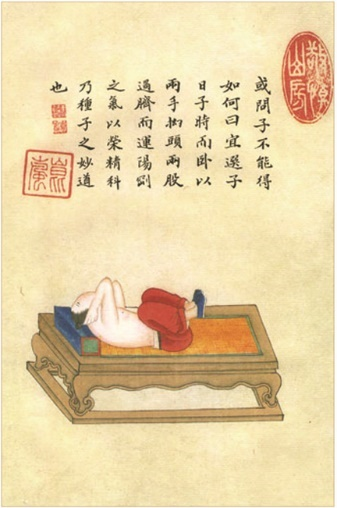 或問子不能得
如何曰宜選子
日子時而臥以
兩手抱頭兩股
過臍而運陽劉
之氣以榮精科
乃種子之妙道
也